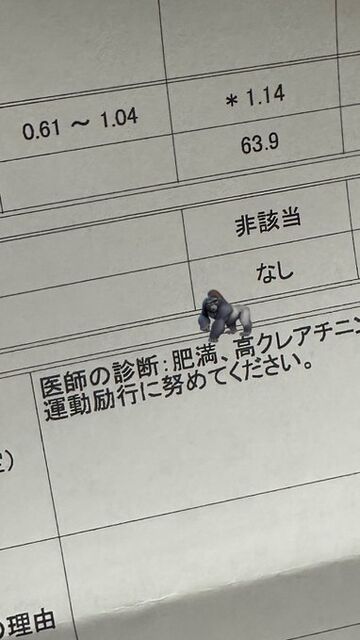 0.61 ～ 1.04
* 1.14
63.9
非該当
なし
医師の診断：肥満、高クレアチニン
運動励行に努めてください。
の理由